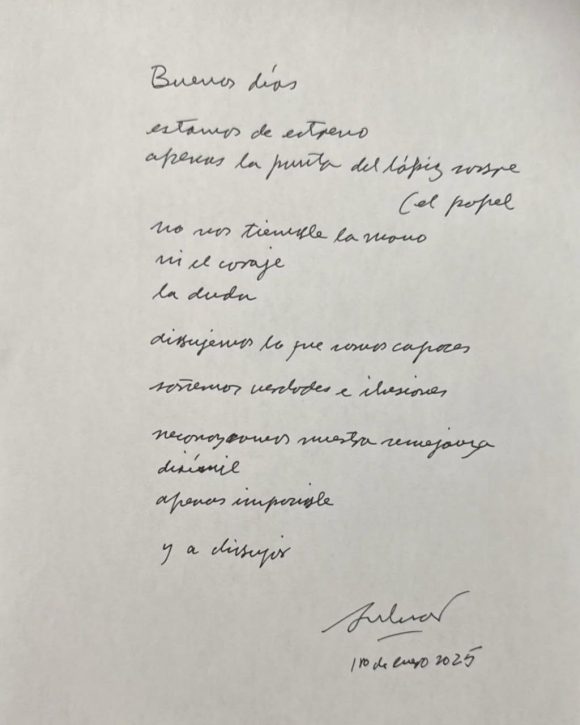 Buenos días
estamos de estreno
apenas la punta del lápiz rompe
(el papel
no nos tiemble la mano
ni el coraje
la duda
dibujemos lo que somos capaces
soñemos verdades e ilusiones
reconozcamos nuestra semejanza
disímil
apenas imposible
y a dibujar
1ro de enero 2025